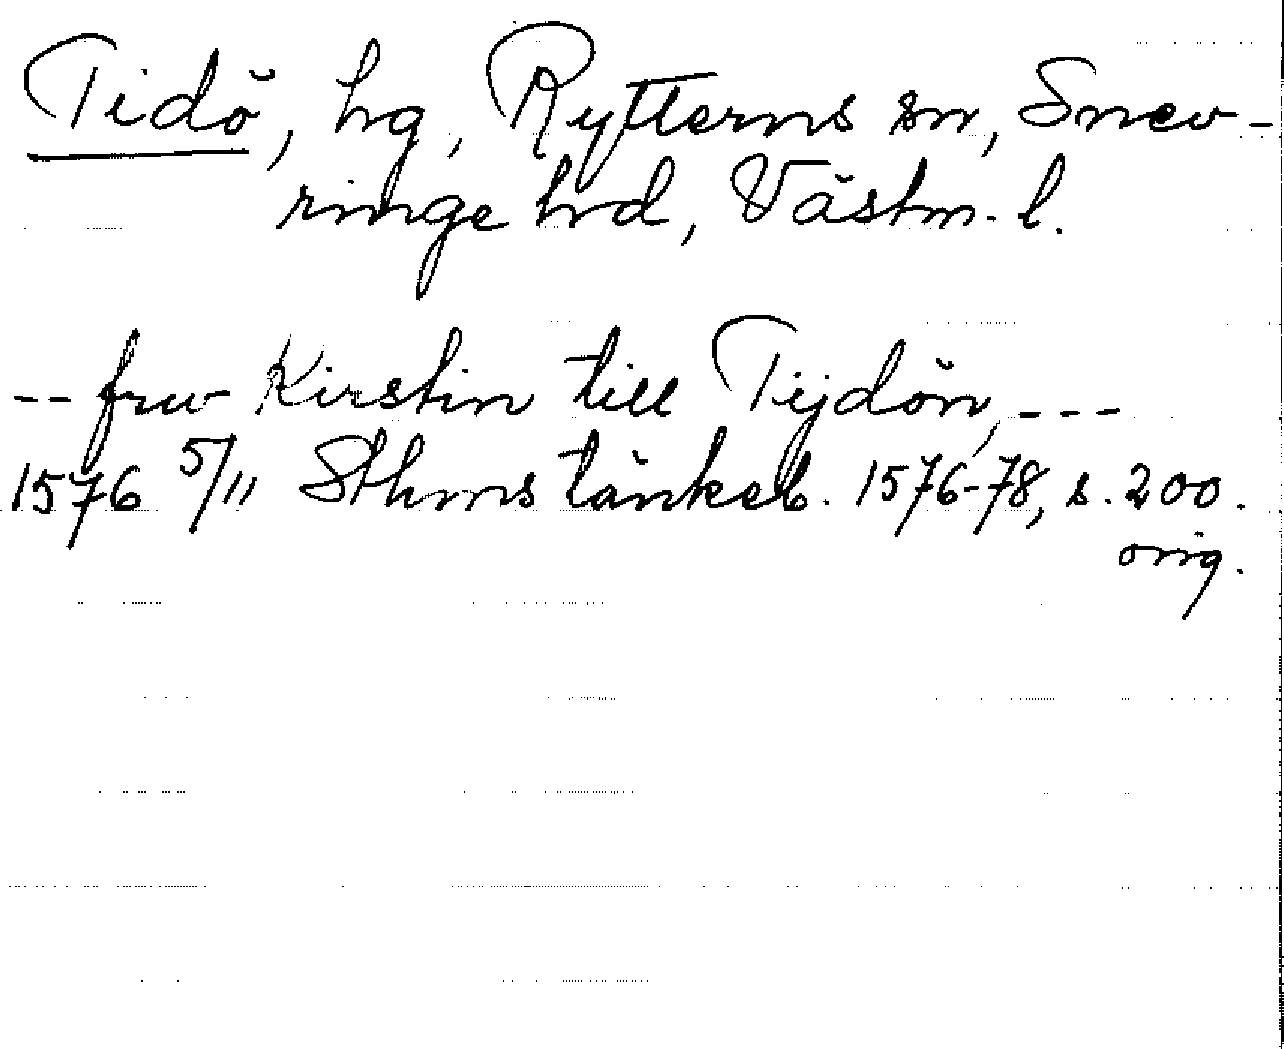 Tidö, hg, Rytterns sn, Snev-
ringe hrd, Västm. l.
-- frw Kirstin till Tijdön, ---
1576 5/11 Sthms tänkeb. 1576-78, s. 200.
orig.